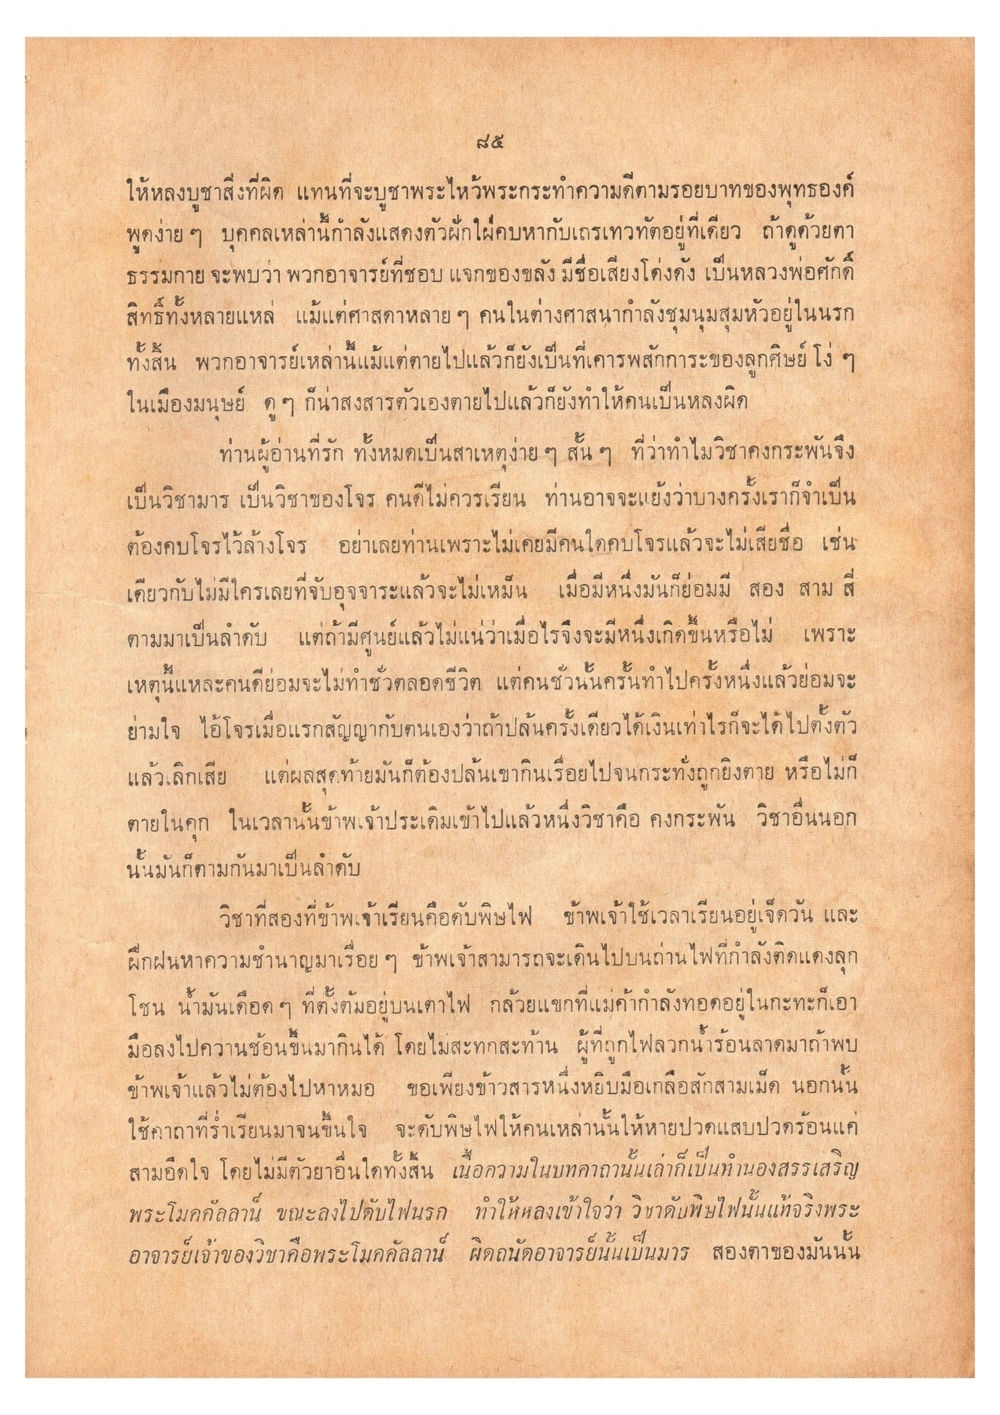 ๘๕
ให้หลงบูชาสิ่งที่ผิด แทนที่จะบูชาพระไหว้พระกระทำความดีตามรอยบาทของพุทธองค์
พูดง่าย ๆ บุคคลเหล่านี้กำลังแสดงตัวฝักใฝ่คบหากับเถรเทวทัตอยู่ที่เดียว ถ้าดูด้วยตา
ธรรมกาย จะพบว่า พวกอาจารย์ที่ชอบ แจกของขลัง มีชื่อเสียงโด่งดัง เป็นหลวงพ่อศักดิ์
สิทธิ์ทั้งหลายแหล่ แม้แต่ศาสดาหลาย ๆ คนในต่างศาสนากำลังชุมนุมสุมหัวอยู่ในนรก
ทั้งสิ้น พวกอาจารย์เหล่านี้แม้แต่ตายไปแล้วก็ยังเป็นที่เคารพสักการะของลูกศิษย์ โง่ ๆ
ในเมืองมนุษย์ ดู ๆ ก็น่าสงสารตัวเองตายไปแล้วก็ยังทำให้คนเป็นหลงผิด
ท่านผู้อ่านที่รัก ทั้งหมดเป็นสาเหตุง่าย ๆ สั้น ๆ ที่ว่าทำไมวิชาคงกระพันจึง
เป็นวิชามาร เป็นวิชาของโจร คนดีไม่ควรเรียน ท่านอาจจะแย้งว่าบางครั้งเราก็จำเป็น
ต้องคบโจรไว้ล้างโจร อย่าเลยท่านเพราะไม่เคยมีคนใดคบโจรแล้วจะไม่เสียชื่อ เช่น
เดียวกับไม่มีใครเลยที่จับอุจจาระแล้วจะไม่เหม็น เมื่อมีหนึ่งมันก็ย่อมมี สอง สาม สี่
ตามมาเป็นลำดับ แต่ถ้ามีศูนย์แล้วไม่แน่ว่าเมื่อไรจึงจะมีหนึ่งเกิดขึ้นหรือไม่ เพราะ
เหตุนี้แหละคนดีย่อมจะไม่ทำชั่วตลอดชีวิต แต่คนชั่วนั้นครั้นทำไปครั้งหนึ่งแล้วย่อมจะ
ย่ามใจ ไอ้โจรเมื่อแรกสัญญากับตนเองว่าถ้าปล้นครั้งเดียวได้เงินเท่าไรก็จะได้ไปตั้งตัว
แล้วเลิกเสีย แต่ผลสุดท้ายมันก็ต้องปล้นเขากินเรื่อยไปจนกระทั่งถูกยิงตาย หรือไม่ก็
ตายในคุก ในเวลานั้นข้าพเจ้าประเดิมเข้าไปแล้วหนึ่งวิชาคือ คงกระพัน วิชาอื่นนอก
นั้นมันก็ตามกันมาเป็นลำดับ
วิชาที่สองที่ข้าพเจ้าเรียนคือดับพิษไฟ ข้าพเจ้าใช้เวลาเรียนอยู่เจ็ดวัน และ
ฝึกฝนหาความชำนาญมาเรื่อย ๆ ข้าพเจ้าสามารถจะเดินไปบนถ่านไฟที่กำลังติดแดงลุก
โชน น้ำมันเดือด ๆ ที่ตั้งต้มอยู่บนเตาไฟ กล้วยแขกที่แม่ค้ากำลังทอดอยู่ในกะทะก็เอา
มือลงไปควานช้อนขึ้นมากินได้ โดยไม่สะทกสะท้าน ผู้ที่ถูกไฟลวกน้ำร้อนลาดมาถ้าพบ
ข้าพเจ้าแล้วไม่ต้องไปหาหมอ ขอเพียงข้าวสารหนึ่งหยิบมือเกลือสักสามเม็ด นอกนั้น
ใช้คาถาที่ร่ำเรียนมาจนขึ้นใจ จะดับพิษไฟให้คนเหล่านั้นให้หายปวดแสบปวดร้อนแค่
สามอึดใจ โดยไม่มีตัวยาอื่นใดทั้งสิ้น เนื้อความในบทคาถานั้นเล่าก็เป็นทำนองสรรเสริญ
พระโมคคัลลาน์ ขณะลงไปดับไฟนรก ทำให้หลงเข้าใจว่า วิชาดับพิษไฟนั้นแท้จริงพระ
อาจารย์เจ้าของวิชาคือพระโมคคัลลาน์ ผิดถนัดอาจารย์นั้นเป็นมาร สองตาของมันนั้น